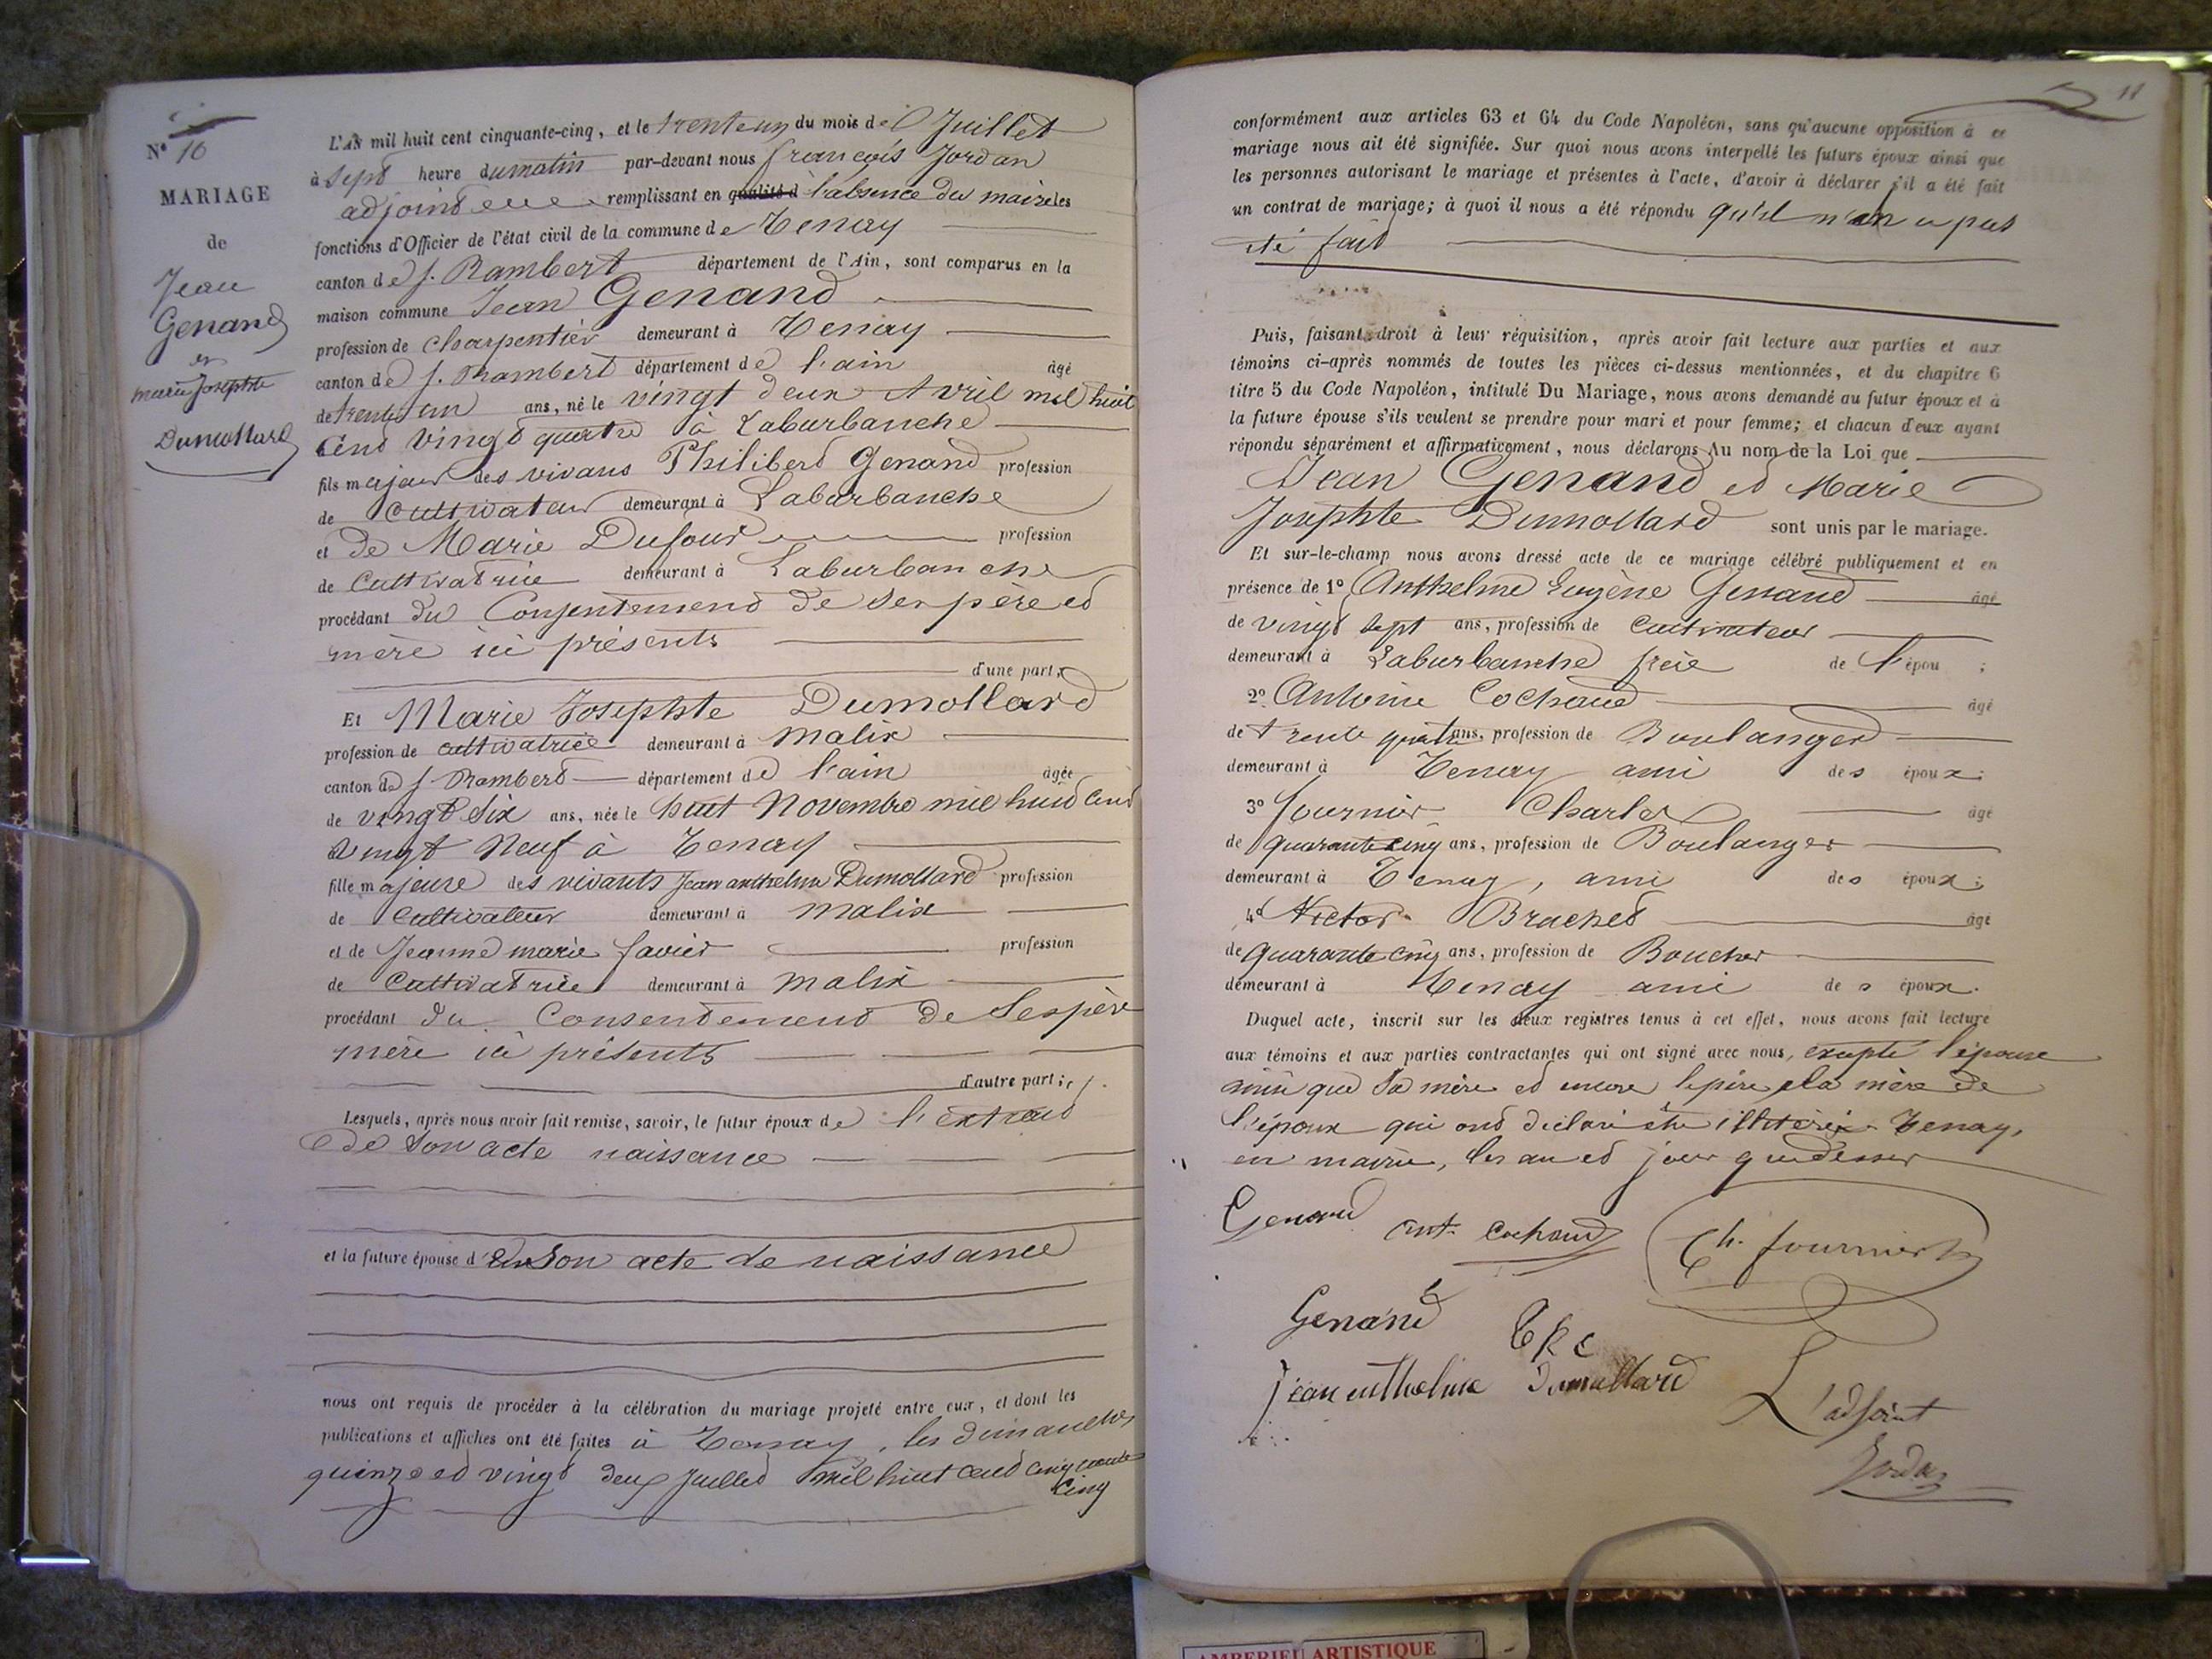 N° 10
MARIAGE
de
Jean
Genand
et
marie Josephte
Dumollard
L'AN mil huit cent cinquante-cinq, et le trente un du mois de Juillet
à sept heure dumatin par-devant nous françois Jordan
adjoind remplissant en qualité d l'absence du maire les
fonctions d'Officier de l'état civil de la commune de Tenay
canton de S. Rambert département de l'Ain, sont comparus en la
maison commune Jean Genand
profession de charpentier demeurant à Tenay
canton de S. Rambert département de l'ain âgé
de trente un ans, né le vingt deux Avril mil huit
Cent vingt quatre à Laburbanche
fils majeur des vivans Philibert Genand profession
de Cultivateur demeurant à Laburbanche
et de Marie Dufour profession
de Cultivatrice demeurant à Laburbanche
procédant du Consentement de ses père et
mère ici présents
d'une part;
Et Marie Josephte Dumollard
profession de cultivatrice demeurant à Malix
canton de S. Rambert département de l'ain âgée
de vingt six ans, née le huit Novembre mil huit Cent
vingt Neuf à Tenay
fille majeure des vivants Jean anthelme Dumollard profession
de Cultivateur demeurant à malix
et de Jeanne marie favier profession
de Cultivatrice demeurant à malix
procédant du Consentement de Ses père
mère ici présents
d'autre part;
Lesquels, après nous avoir fait remise, savoir, le futur époux de l'extrait
de Son acte naissance
et la future épouse d Son acte de naissance
nous ont requis de procéder à la célébration du mariage projeté entre eux, et dont les
publications et affiches ont été faites à Tenay, les dimanches
quinze et vingt deux juillet mil huit cent cinquante
cinq
11
conformément aux articles 63 et 64 du Code Napoléon, sans qu'aucune opposition à ce
mariage nous ait été signifiée. Sur quoi nous avons interpellé les futurs époux ainsi que
les personnes autorisant le mariage et présentes à l'acte, d'avoir à déclarer s'il a été fait
un contrat de mariage; à quoi il nous a été répondu qu'il n'en a pas
été fait
Puis, faisant droit à leur réquisition, après avoir fait lecture aux parties et aux
témoins ci-après nommés de toutes les pièces ci-dessus mentionnées, et du chapitre 6
titre 5 du Code Napoléon, intitulé Du Mariage, nous avons demandé au futur époux et à
la future épouse s'ils veulent se prendre pour mari et pour femme; et chacun d'eux ayant
répondu séparément et affirmativement, nous déclarons Au nom de la Loi que
Jean Genand et Marie
Josephte Dumollard sont unis par le mariage.
Et sur-le-champ nous avons dressé acte de ce mariage célébré publiquement et en
présence de 1° Anthelme Eugène Genand âgé
de vingt sept ans, profession de Cultivateur
demeurant à Laburbanche frère de l'épou ;
2° Antoine Cochand âgé
de trente quatre ans, profession de Boulanger
demeurant à Tenay ami des époux;
3° fournier Charles âgé
de quarante cinq ans, profession de Boulanger
demeurant à Tenay, ami des époux;
4° Victor Brachet âgé
de quarante cinq ans, profession de Boucher
demeurant à Tenay ami des époux.
Duquel acte, inscrit sur les deux registres tenus à cet effet, nous avons fait lecture
aux témoins et aux parties contractantes qui ont signé avec nous, excepté l'épouse
ainsi que Sa mère et encore le père et la mère de
l'époux qui ont déclaré être Tenay,
en mairie, les an et jour que dessus
Genand ant. Cochand Ch. fournier
Genand
jean anthelme Dumollard
L'adjoint
Jordan
AMBERIEU ARTISTIQUE